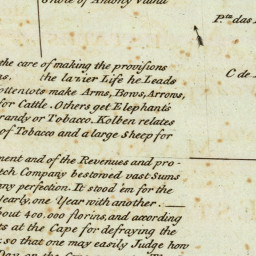 Shore of Antony Vaand
P.ᵗᵃ das
the care of making the provisions
ns. the lazier Life he Leads
ottentots make Arms, Bows, Arrows,
for Cattle. Others get Elephant's
randy or Tobacco. Kolben relates
of Tobacco and a large Sheep for
C de
ment and of the Revenues and pro-
tch Company bestowed vast Sums
any perfection. It stood 'em for the
Yearly, one Year with another.
bout 400.000 florins, and according
ts at the Cape for defraying the
t: so that one may easily Judge how